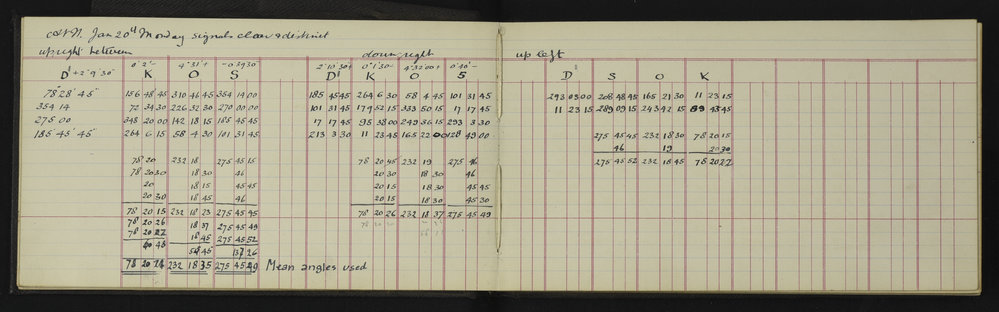 At N. Jan 20th Monday signals clear & distinct
upright between down right up left
0° 2' - 4° 31' + -0° 39 30 2° 10' 30" + 0° 1' 30 - 4° 32' 00 + 0° 40' -
D¹ + 2° 9' 30" K O S D¹ K O S D¹ S O K
78° 28' 45" 156 48 45 310 46 45 354 14 00 185 45 45 264 6 30 58 4 45 101 31 45 293 03 00 208 48 45 165 21 30 11 23 15
354 14 72 34 30 226 32 30 270 00 00 101 31 45 179 52 15 333 50 15 17 17 45 11 23 15 289 09 15 243 42 15 89 43 45
275 00 348 20 00 142 18 15 185 45 45 17 17 45 95 38 00 249 36 15 293 3 30
185° 45' 45" 264 6 15 58 4 30 101 31 45 213 3 30 11 23 45 165 22 00 128 49 00 275 45 45 232 18 30 78 20 15
46 19 20 30
78 20 232 18 275 45 15 78 20 45 232 19 275 46 275 45 52 232 18 45 78 20 22
78 20 30 18 30 46 20 30 18 30 46
20 18 15 45 45 20 15 18 30 45 45
20 30 18 45 46 20 15 18 30 45 30
78 20 15 232 18 23 275 45 45 78 20 26 232 18 37 275 45 49
78 20 26 18 37 275 45 49
78 20 22 18 45 275 45 52
78 20 21 232 18 35 275 45 49 Mean angles used